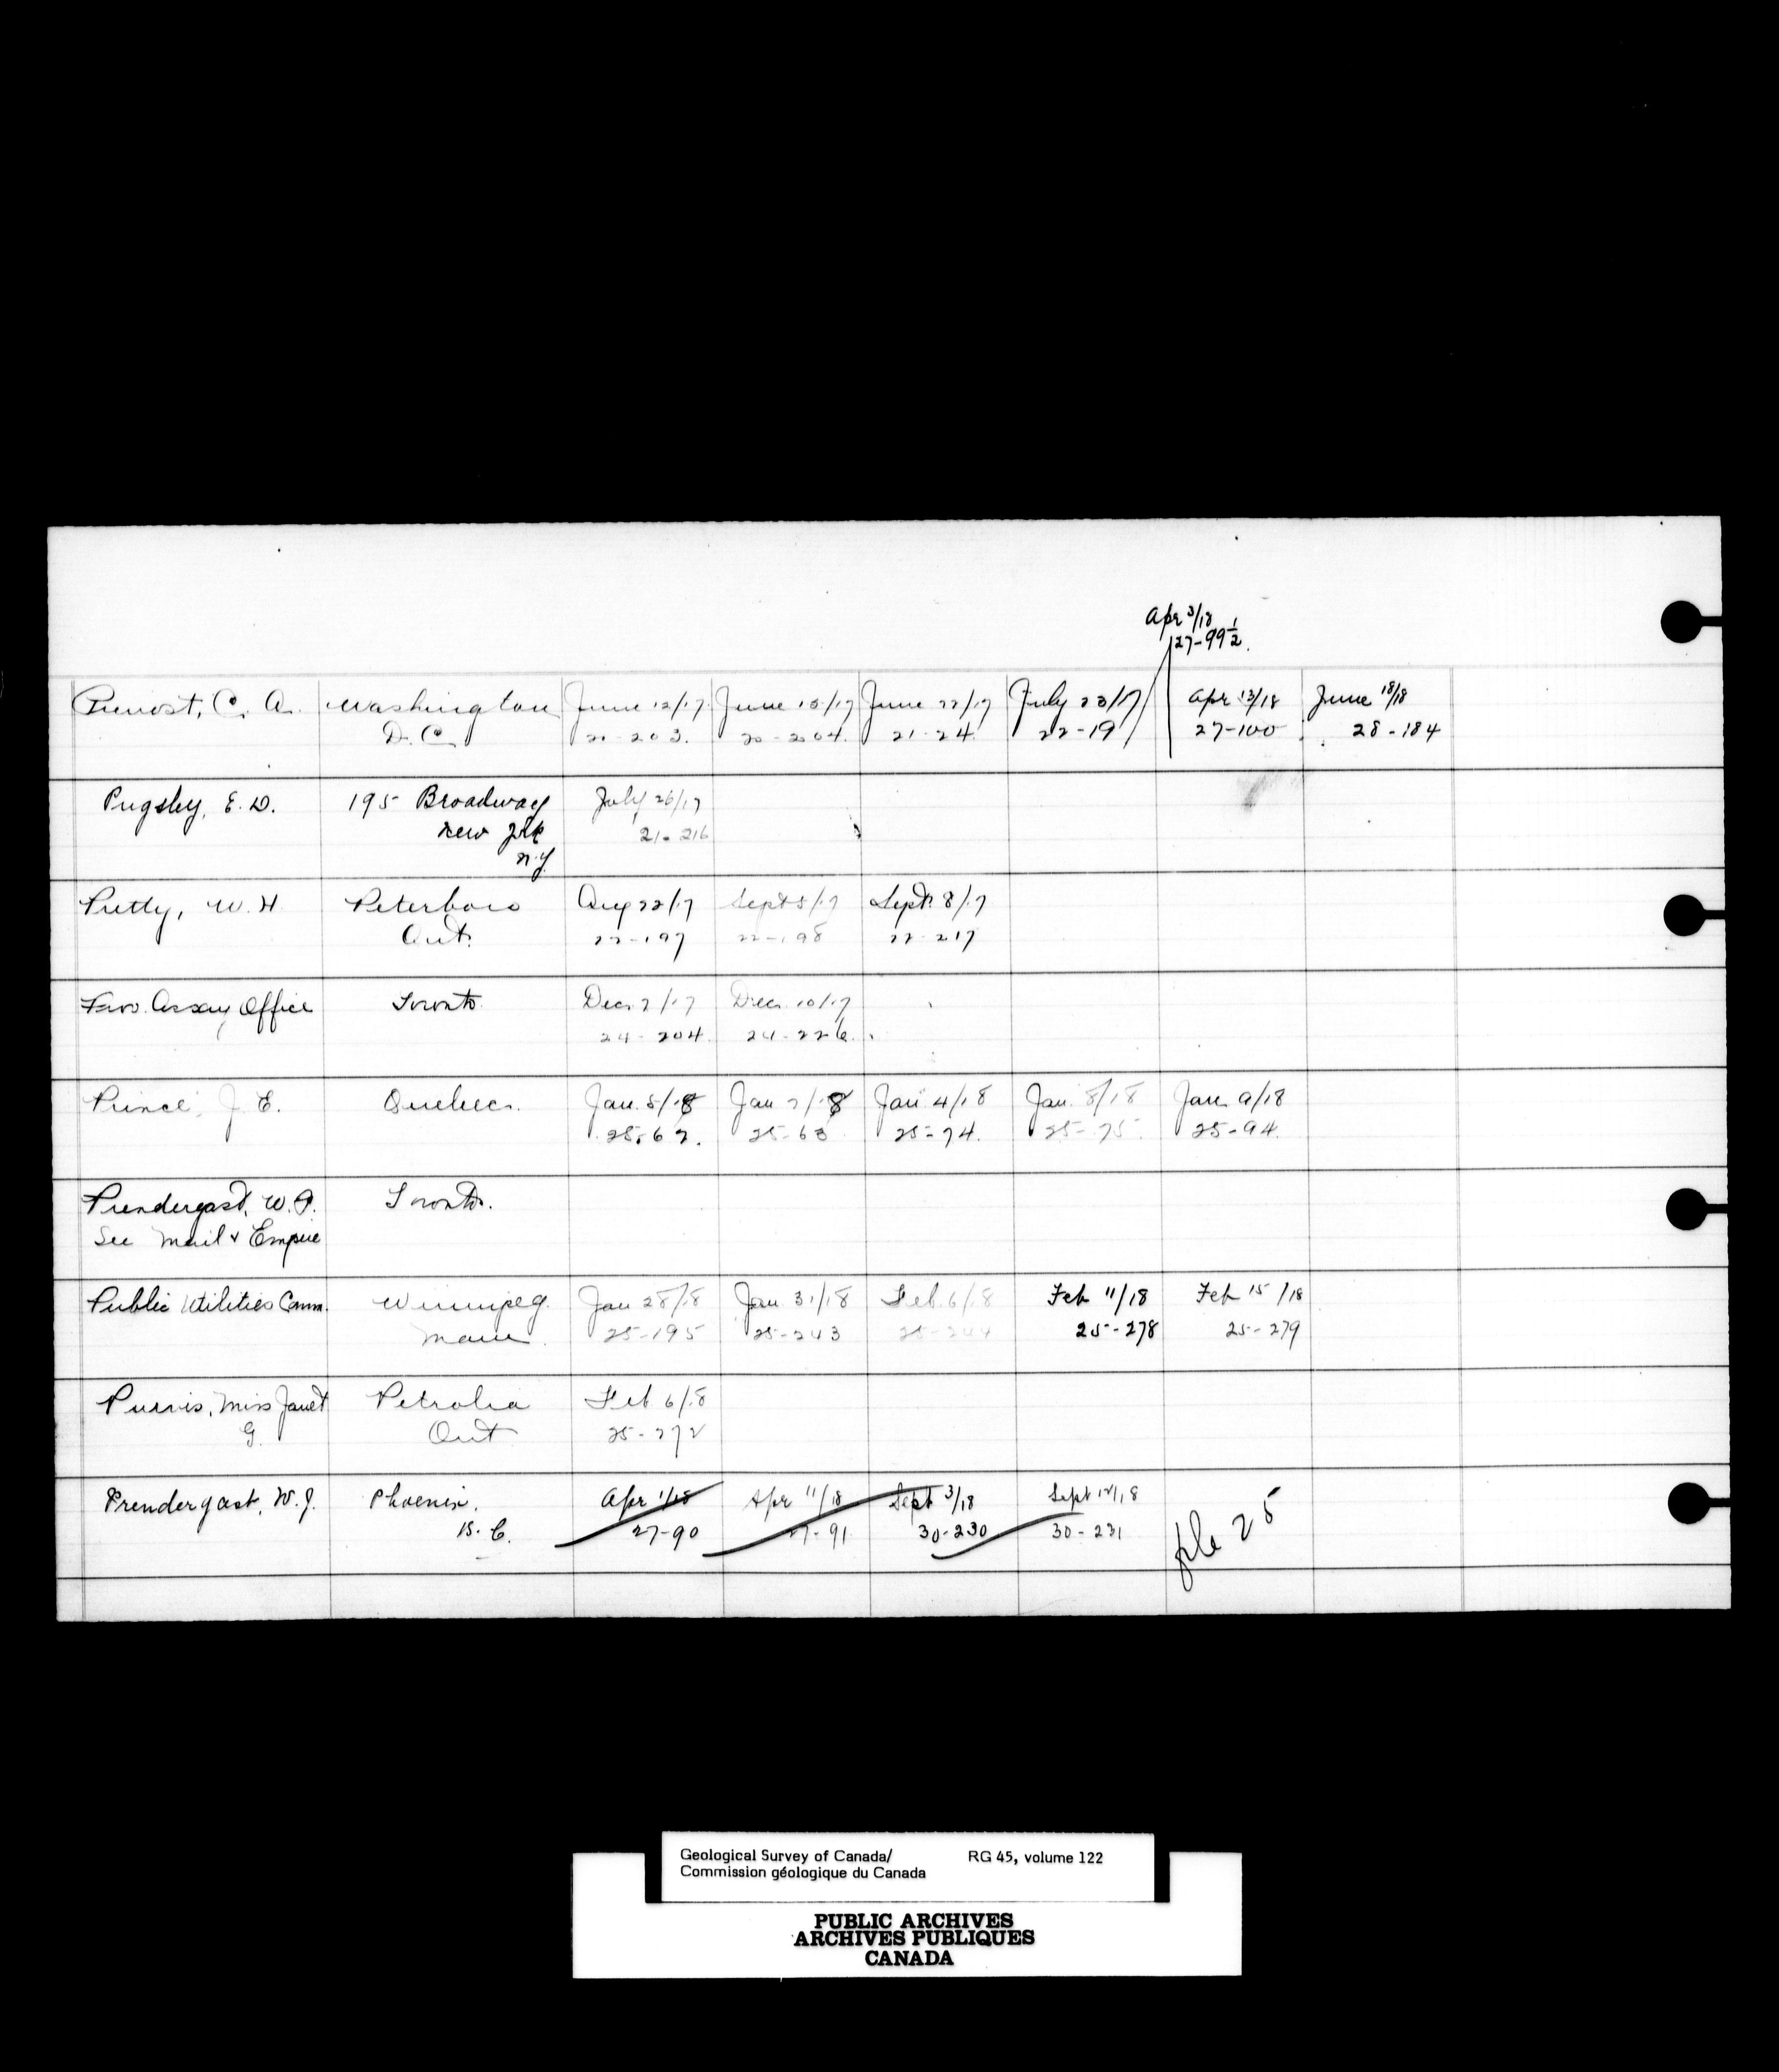 Apr 3/18
27-99½.
Prevost, C. A. Washington June 12/17 June 15/17 June 22/17 July 23/17 Apr 13/18 June 18/18
D.C. 20-203. 20-204. 21-24. 22-19 27-100 28-184
Pugsley, E. D. 195 Broadway July 26/17
New York 21-216
N.Y.
Putty, W. H. Peterboro Aug 22/17 Sept 5/17 Sept. 8/17
Ont. 22-197 22-198 22-217
Prov. Assay Office Toronto. Dec. 7/17 Dec. 10/17
24-204. 24-226.
Prince, J. E. Quebec. Jan. 5/18 Jan 7/18 Jan 4/18 Jan. 8/18 Jan. 9/18
25-62. 25-63 25-74. 25-75. 25-94.
Prendergast, W. P. Toronto.
See Mail & Empire
Public Utilities Comm. Winnipeg. Jan 28/18 Jan. 31/18 Feb. 6/18 Feb 11/18 Feb 15/18
Man. 25-195 25-243 25-244 25-278 25-279
Purvis, Miss Janet Petrolia Feb 6/18
G. Ont 25-272
Prendergast, W. J. Phoenix, Apr 1/18 Apr 11/18 Sept 3/18 Sept 12/18
B.C. 27-90 27-91 30-230 30-231
file 25
Geological Survey of Canada/ RG 45, volume 122
Commission géologique du Canada
PUBLIC ARCHIVES
ARCHIVES PUBLIQUES
CANADA